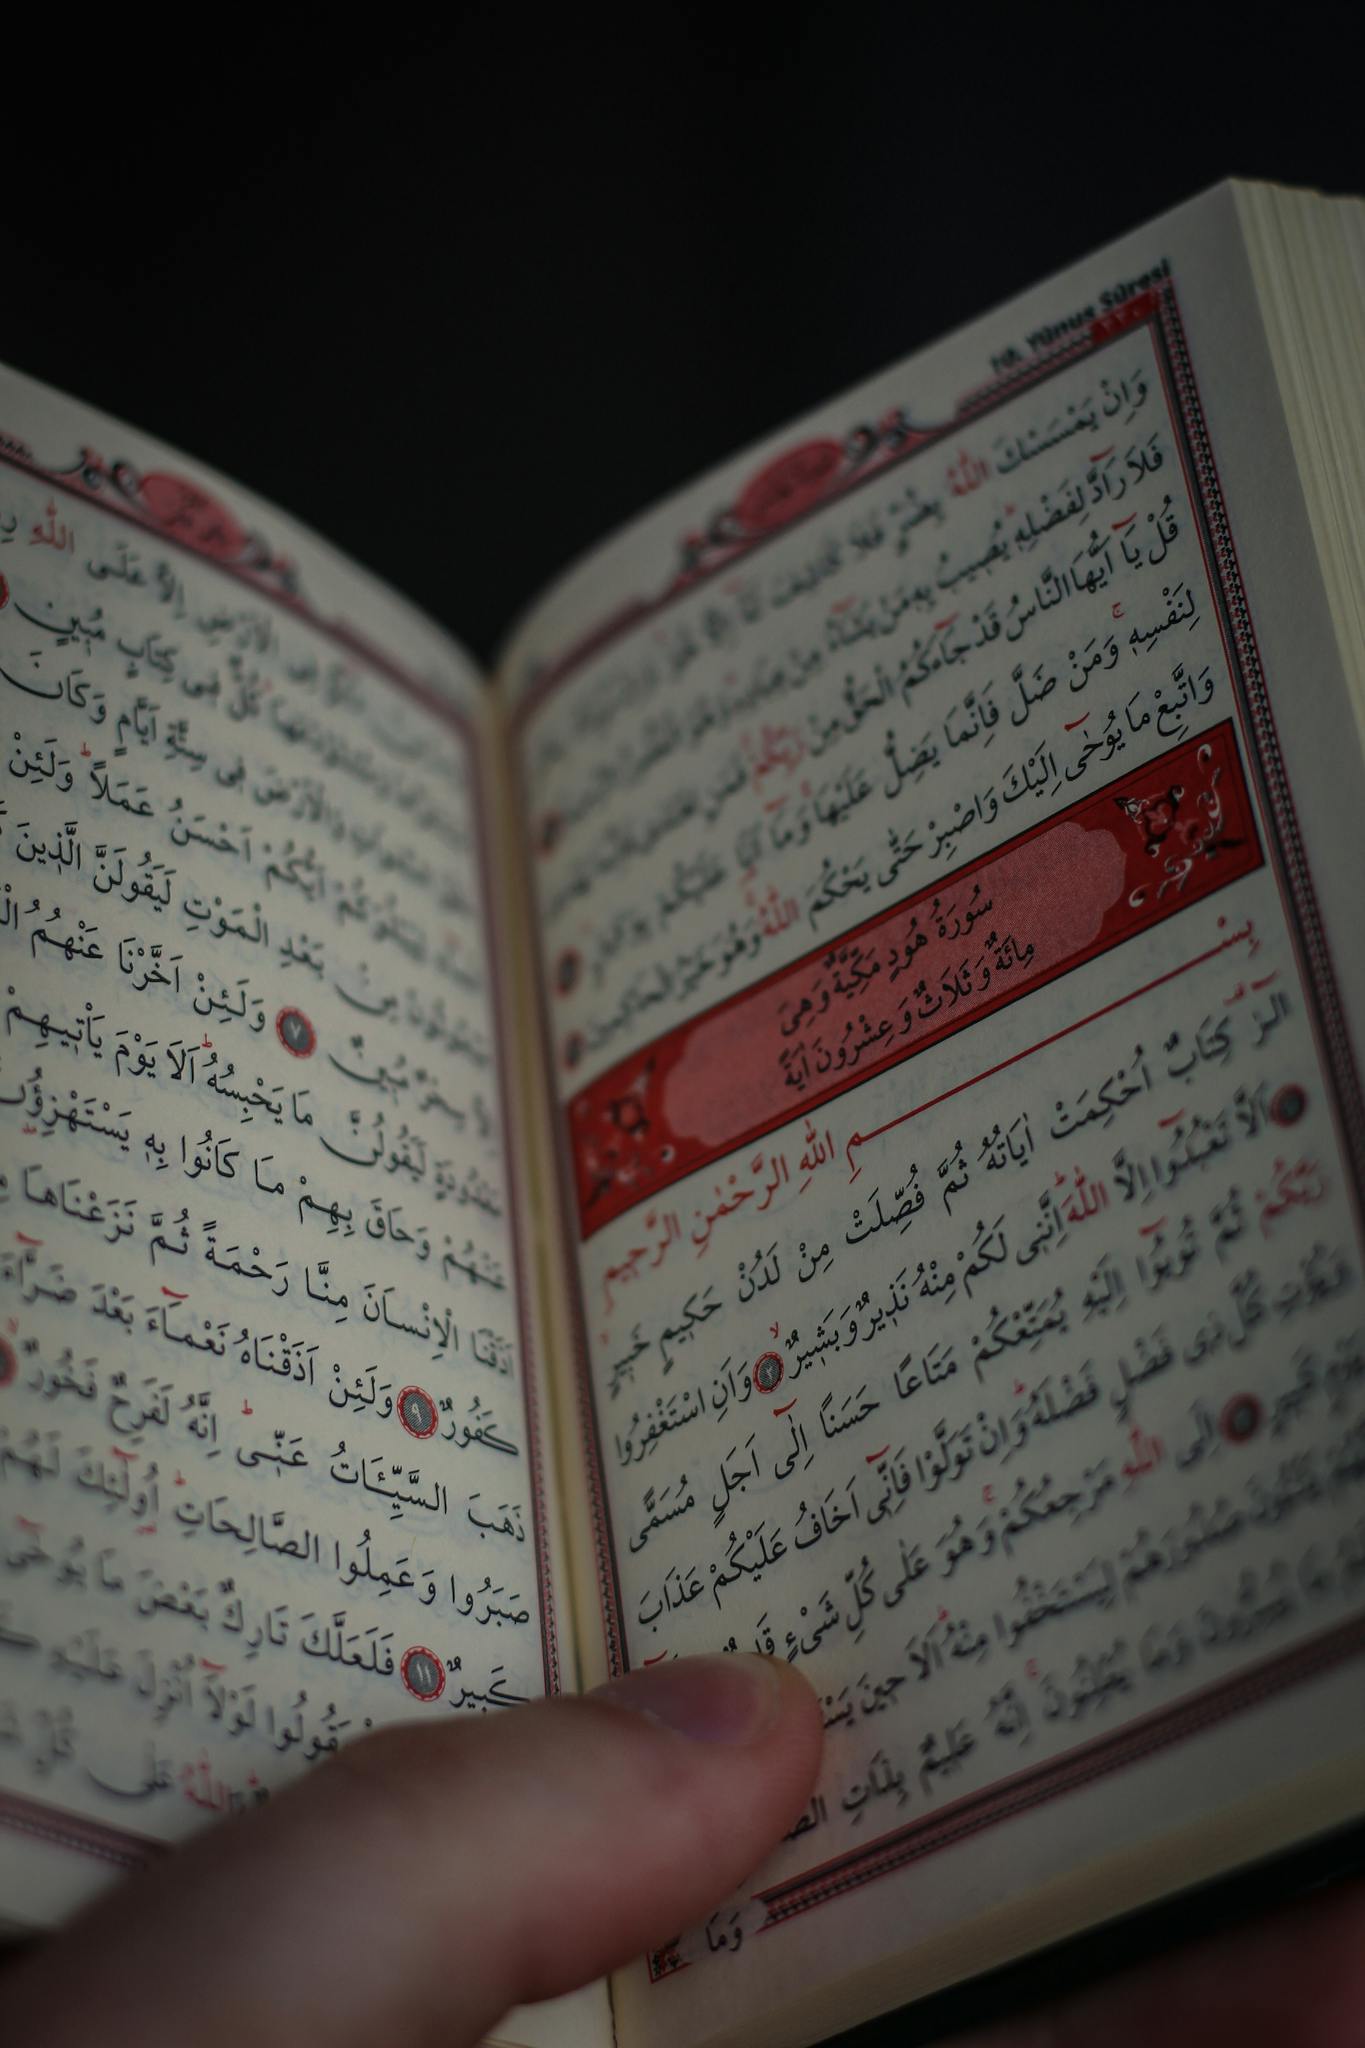 10. Yûnus Sûresi
وَاِنْ يَمْسَسْكَ اللّٰهُ بِضُرٍّ فَلَا كَاشِفَ لَهُٓ
فَلَا رَٓادَّ لِفَضْلِهٖ يُصٖيبُ بِهٖ مَنْ يَشَٓاءُ مِنْ عِبَادِهٖ
قُلْ يَٓا اَيُّهَا النَّاسُ قَدْ جَٓاءَكُمُ الْحَقُّ مِنْ رَبِّكُمْ فَمَنِ
لِنَفْسِهٖ وَمَنْ ضَلَّ فَاِنَّمَا يَضِلُّ عَلَيْهَا وَمَٓا اَنَا عَلَيْكُمْ بِوَكٖيلٍ
وَاتَّبِعْ مَا يُوحٰٓى اِلَيْكَ وَاصْبِرْ حَتّٰى يَحْكُمَ اللّٰهُ وَهُوَ خَيْرُ الْحَاكِمٖينَ
سُورَةُ هُودٍ مَكِّيَّةٌ وَهِىَ
مِائَةٌ وَثَلَاثٌ وَعِشْرُونَ اٰيَةً
بِسْمِ اللّٰهِ الرَّحْمٰنِ الرَّحٖيمِ
الٓرٰ كِتَابٌ اُحْكِمَتْ اٰيَاتُهُ ثُمَّ فُصِّلَتْ مِنْ لَدُنْ حَكٖيمٍ خَبٖيرٍ
اَلَّا تَعْبُدُٓوا اِلَّا اللّٰهَ اِنَّنٖى لَكُمْ مِنْهُ نَذٖيرٌ وَبَشٖيرٌ ٢ وَاَنِ اسْتَغْفِرُوا
رَبَّكُمْ ثُمَّ تُوبُٓوا اِلَيْهِ يُمَتِّعْكُمْ مَتَاعًا حَسَنًا اِلٰٓى اَجَلٍ مُسَمًّى
وَيُؤْتِ كُلَّ ذٖى فَضْلٍ فَضْلَهُ وَاِنْ تَوَلَّوْا فَاِنّٖٓى اَخَافُ عَلَيْكُمْ عَذَابَ
يَوْمٍ كَبٖيرٍ اِلَى اللّٰهِ مَرْجِعُكُمْ وَهُوَ عَلٰى كُلِّ شَىْءٍ
يَثْنُونَ صُدُورَهُمْ لِيَسْتَخْفُوا مِنْهُ اَلَا حٖينَ
يُسِرُّونَ وَمَا يُعْلِنُونَ اِنَّهُ عَلٖيمٌ بِذَاتِ
وَمَا
فِى الْاَرْضِ اِلَّا عَلَى اللّٰهِ
كُلٌّ فٖى كِتَابٍ مُبٖينٍ
وَالْاَرْضَ فٖى سِتَّةِ اَيَّامٍ وَكَانَ
لِيَبْلُوَكُمْ اَيُّكُمْ اَحْسَنُ عَمَلًا وَلَئِنْ
مَبْعُوثُونَ مِنْ بَعْدِ الْمَوْتِ لَيَقُولَنَّ الَّذٖينَ
سِحْرٌ مُبٖينٌ ٧ وَلَئِنْ اَخَّرْنَا عَنْهُمُ
مَعْدُودَةٍ لَيَقُولُنَّ مَا يَحْبِسُهُ اَلَا يَوْمَ يَاْتٖيهِمْ
عَنْهُمْ وَحَاقَ بِهِمْ مَا كَانُوا بِهٖ يَسْتَهْزِؤُنَ
اَذَقْنَا الْاِنْسَانَ مِنَّا رَحْمَةً ثُمَّ نَزَعْنَاهَا
كَفُورٌ ٩ وَلَئِنْ اَذَقْنَاهُ نَعْمَٓاءَ بَعْدَ ضَرَّٓاءَ
ذَهَبَ السَّيِّـَٔاتُ عَنّٖى اِنَّهُ لَفَرِحٌ فَخُورٌ
صَبَرُوا وَعَمِلُوا الصَّالِحَاتِ اُولٰٓئِكَ لَهُمْ
كَبٖيرٌ ١١ فَلَعَلَّكَ تَارِكٌ بَعْضَ مَا يُوحٰٓى
يَقُولُوا لَوْلَٓا اُنْزِلَ عَلَيْهِ
اللّٰهُ عَلٰى كُلِّ